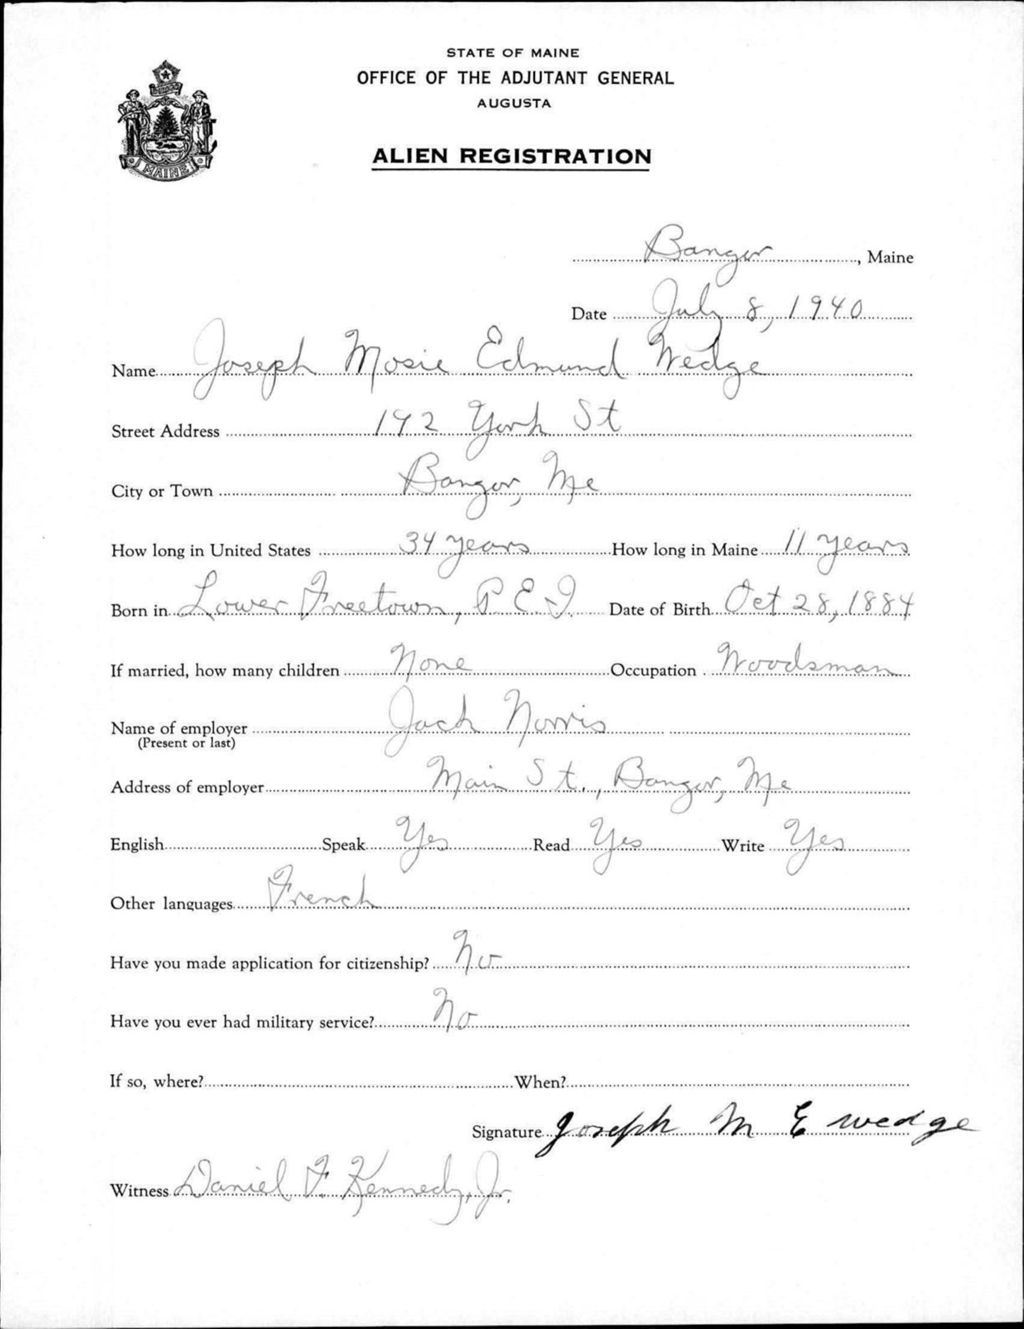 STATE OF MAINE
OFFICE OF THE ADJUTANT GENERAL
AUGUSTA
ALIEN REGISTRATION
MAINE
Bangor, Maine
Date July 8, 1940
Name Joseph Mosie Edmund Wedge
Street Address 192 York St
City or Town Bangor, Me
How long in United States 34 years How long in Maine 11 years
Born in Lower Freetown, P E I Date of Birth Oct 28, 1884
If married, how many children None Occupation Woodsman
Name of employer Jack Norris
(Present or last)
Address of employer Main St., Bangor, Me
English Speak Yes Read Yes Write Yes
Other languages French
Have you made application for citizenship? No
Have you ever had military service? No
If so, where? When?
Signature Joseph M E wedge
Witness Daniel F. Kennedy, Jr.